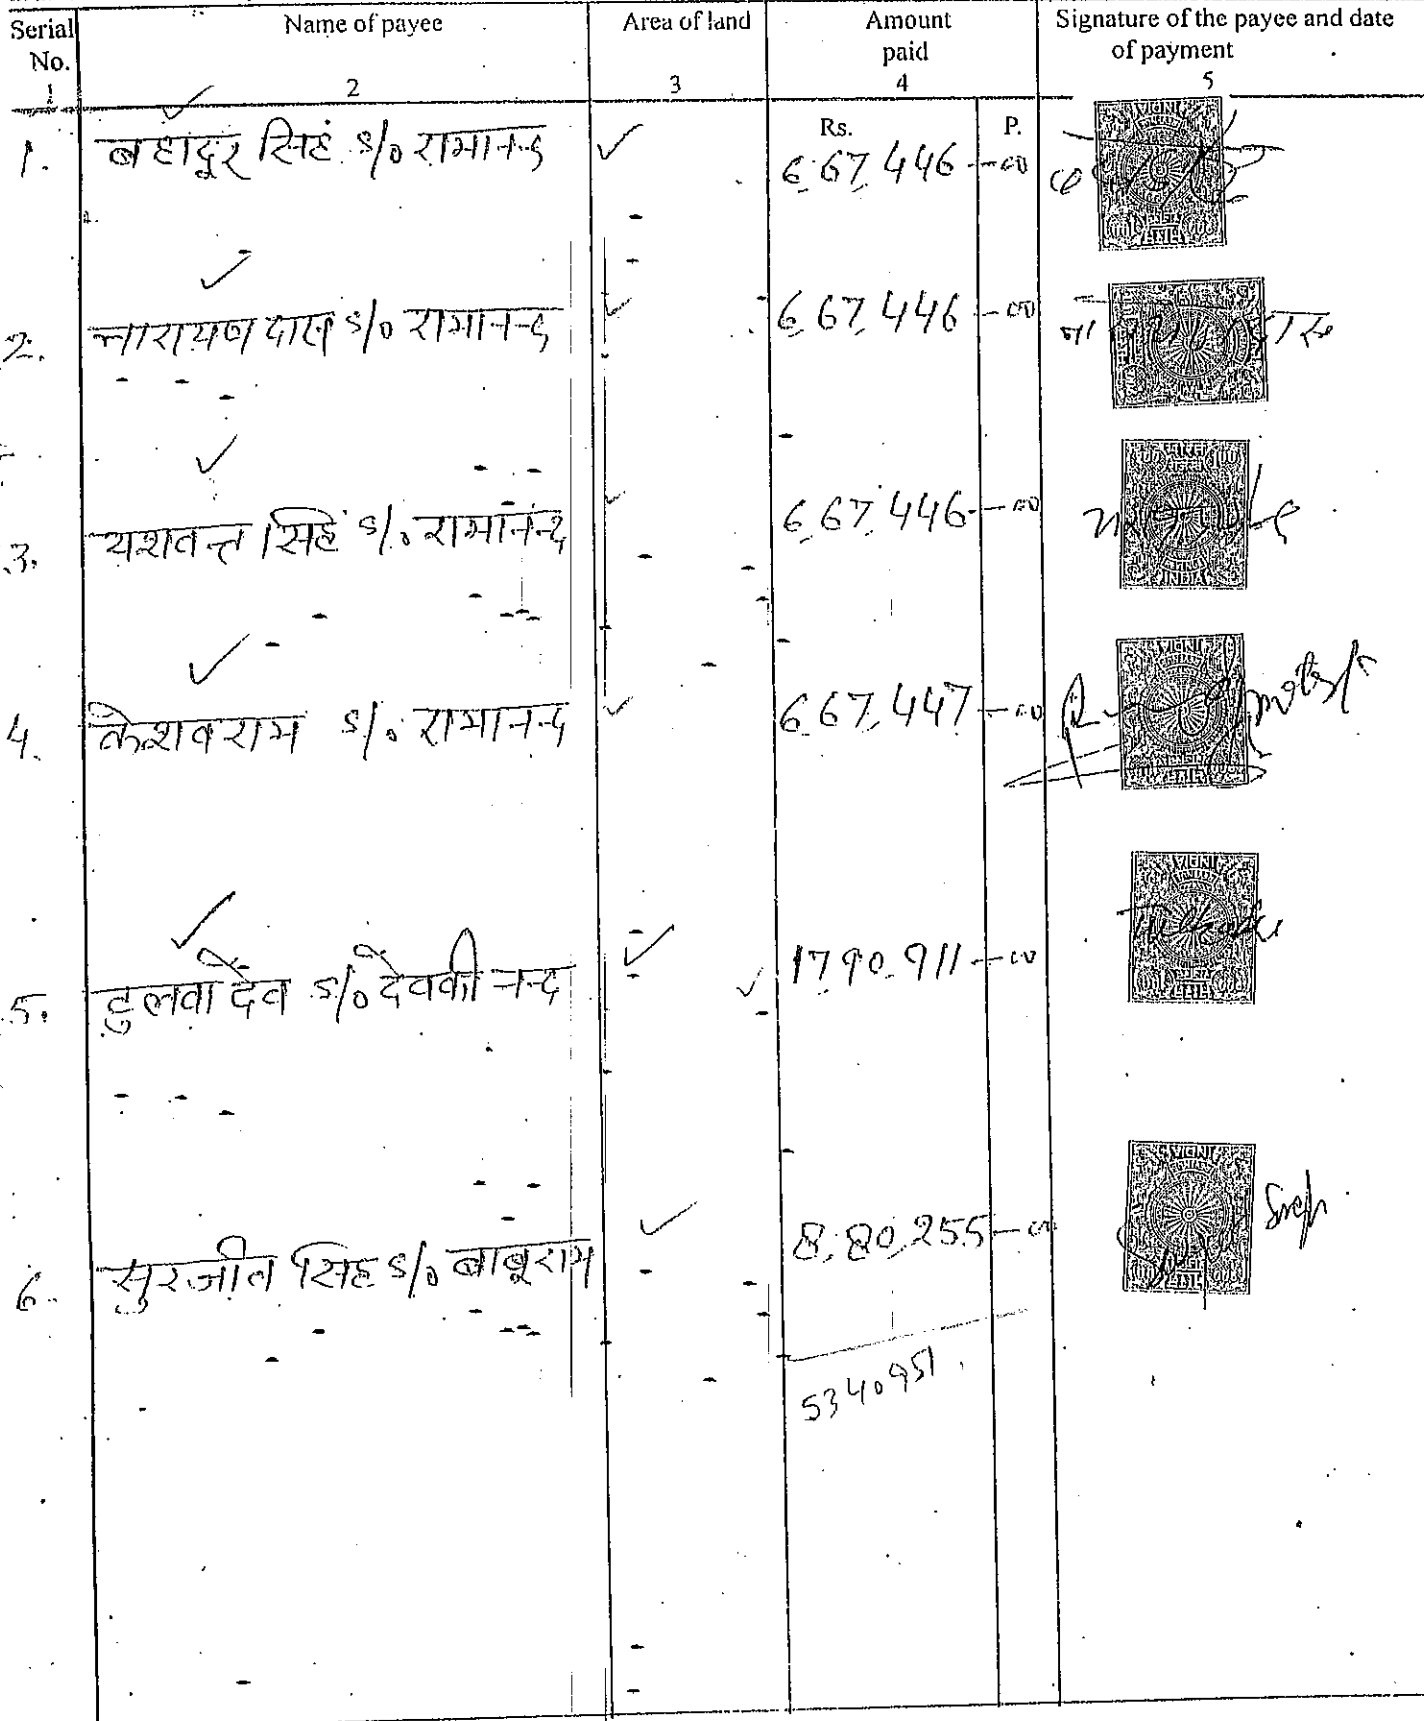 Serial No. Name of payee Area of land Amount paid Signature of the payee and date of payment
1 2 3 4 5
Rs. P.
1. बहादूर सिहं s/o रामानन्द 6,67,446 - 00
2. नारायण दास s/o रामानन्द 6,67,446 - 00
3. यशवन्त सिहं s/o रामानन्द 6,67,446 - 00
INDIA
4. केशवराम s/o रामानन्द 6,67,447 - 00
5. देव s/o देवकी नन्द 1790,911 - 00
6. सुरजीत सिंह s/o बाबूराम 8,80,255 - 00
5340951